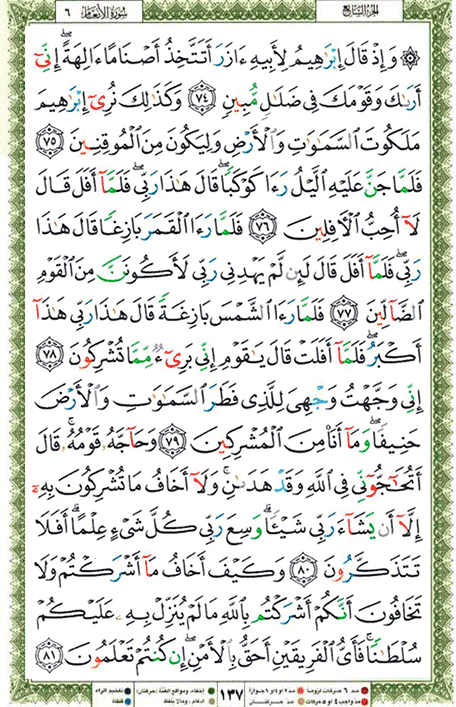 الجزء السابع
سورة الأنعام ٦
۞ وَإِذْ قَالَ إِبْرَٰهِيمُ لِأَبِيهِ ءَازَرَ أَتَتَّخِذُ أَصْنَامًا ءَالِهَةً ۖ إِنِّىٓ
أَرَىٰكَ وَقَوْمَكَ فِى ضَلَٰلٍ مُّبِينٍ ٧٤ وَكَذَٰلِكَ نُرِىٓ إِبْرَٰهِيمَ
مَلَكُوتَ ٱلسَّمَٰوَٰتِ وَٱلْأَرْضِ وَلِيَكُونَ مِنَ ٱلْمُوقِنِينَ ٧٥
فَلَمَّا جَنَّ عَلَيْهِ ٱلَّيْلُ رَءَا كَوْكَبًا ۖ قَالَ هَٰذَا رَبِّى ۖ فَلَمَّآ أَفَلَ قَالَ
لَآ أُحِبُّ ٱلْءَافِلِينَ ٧٦ فَلَمَّا رَءَا ٱلْقَمَرَ بَازِغًا قَالَ هَٰذَا
رَبِّى ۖ فَلَمَّآ أَفَلَ قَالَ لَئِن لَّمْ يَهْدِنِى رَبِّى لَأَكُونَنَّ مِنَ ٱلْقَوْمِ
ٱلضَّآلِّينَ ٧٧ فَلَمَّا رَءَا ٱلشَّمْسَ بَازِغَةً قَالَ هَٰذَا رَبِّى هَٰذَآ
أَكْبَرُ ۖ فَلَمَّآ أَفَلَتْ قَالَ يَٰقَوْمِ إِنِّى بَرِىٓءٌ مِّمَّا تُشْرِكُونَ ٧٨
إِنِّى وَجَّهْتُ وَجْهِىَ لِلَّذِى فَطَرَ ٱلسَّمَٰوَٰتِ وَٱلْأَرْضَ
حَنِيفًا ۖ وَمَآ أَنَا۠ مِنَ ٱلْمُشْرِكِينَ ٧٩ وَحَآجَّهُۥ قَوْمُهُۥ ۚ قَالَ
أَتُحَٰٓجُّوٓنِّى فِى ٱللَّهِ وَقَدْ هَدَىٰنِ ۚ وَلَآ أَخَافُ مَا تُشْرِكُونَ بِهِۦٓ
إِلَّآ أَن يَشَآءَ رَبِّى شَيْـًٔا ۗ وَسِعَ رَبِّى كُلَّ شَىْءٍ عِلْمًا ۗ أَفَلَا
تَتَذَكَّرُونَ ٨٠ وَكَيْفَ أَخَافُ مَآ أَشْرَكْتُمْ وَلَا
تَخَافُونَ أَنَّكُمْ أَشْرَكْتُم بِٱللَّهِ مَا لَمْ يُنَزِّلْ بِهِۦ عَلَيْكُمْ
سُلْطَٰنًا ۚ فَأَىُّ ٱلْفَرِيقَيْنِ أَحَقُّ بِٱلْأَمْنِ ۖ إِن كُنتُمْ تَعْلَمُونَ ٨١
١٣٧
مد ٦ حركات لزوما مد ٢ او ٤ او ٦ جوازا إخفاء، ومواقع الغنة (حركتان) تفخيم الراء
مد واجب ٤ او ٥ حركات مد حركتان إدغام، وما لا يلفظ قلقلة